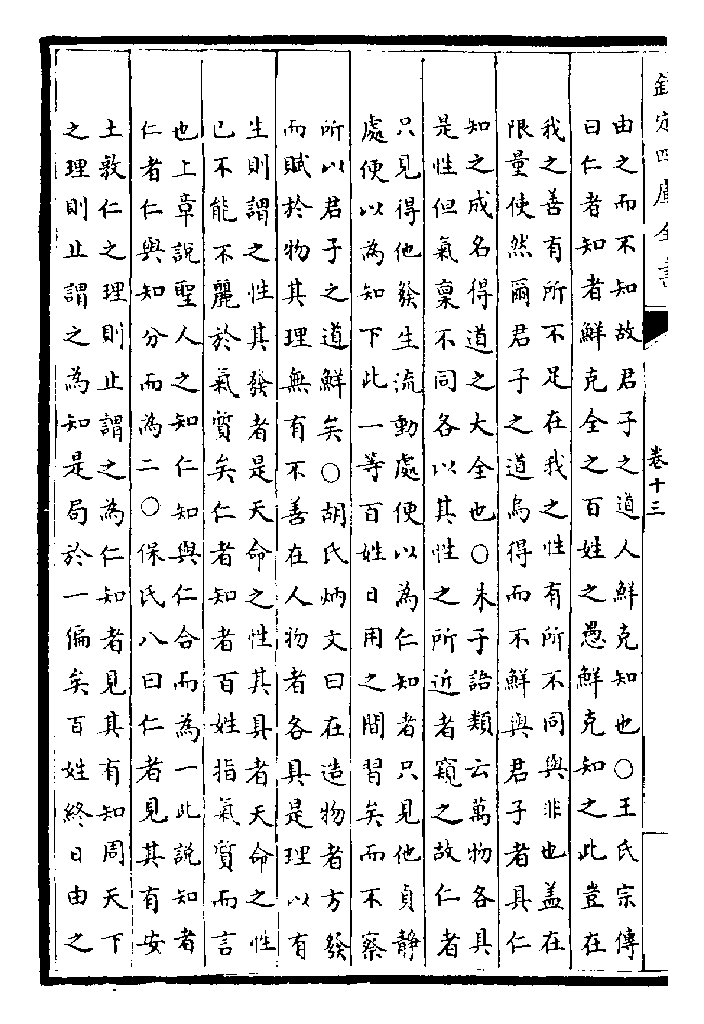 欽定四庫全書
卷十三
由之而不知故君子之道人鮮克知也○王氏宗傳
曰仁者知者鮮克全之百姓之愚鮮克知之此豈在
我之善有所不足在我之性有所不同與非也蓋在
限量使然爾君子之道烏得而不鮮與君子者具仁
知之成名得道之大全也○朱子語類云萬物各具
是性但氣稟不同各以其性之所近者窺之故仁者
只見得他發生流動處便以為仁知者只見他貞靜
處便以為知下此一等百姓日用之間習矣而不察
所以君子之道鮮矣○胡氏炳文曰在造物者方發
而賦於物其理無有不善在人物者各具是理以有
生則謂之性其發者是天命之性其具者天命之性
已不能不麗於氣質矣仁者知者百姓指氣質而言
也上章說聖人之知仁知與仁合而為一此說知者
仁者仁與知分而為二○保氏八曰仁者見其有安
土敦仁之理則止謂之為仁知者見其有知周天下
之理則止謂之為知是局於一偏矣百姓終日由之